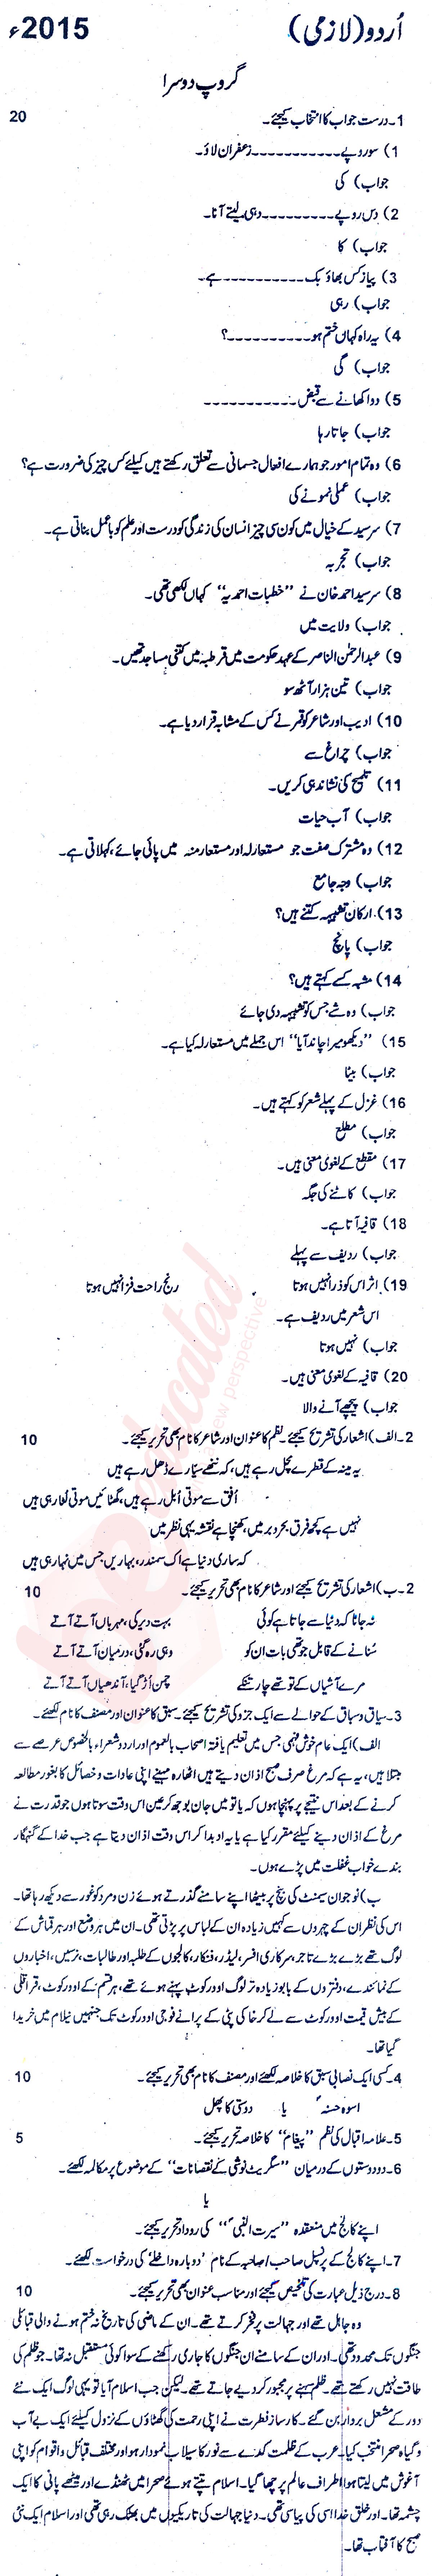 اُردو(لازمی) 2015ء
گروپ دوسرا
1۔درست جواب کا انتخاب کیجئے۔ 20
1) سوروپے۔۔۔۔۔۔۔۔۔۔۔زعفران لاؤ۔
جواب) کی
2) دس روپے۔۔۔۔۔۔۔۔۔دہی لیتے آنا۔
جواب) کا
3) پیاز کس بھاؤ بک۔۔۔۔۔۔۔۔۔۔ہے۔
جواب) رہی
4) یہ راہ کہاں ختم ہو۔۔۔۔۔۔۔۔۔۔؟
جواب) گی
5) دوا کھانے سے قبض۔۔۔۔۔۔۔۔۔۔۔
جواب) جاتا رہا
6) وہ تمام امور جو ہمارے افعال جسمانی سے تعلق رکھتے ہیں کیلئے کس چیز کی ضرورت ہے؟
جواب) عملی نمونے کی
7) سرسید کے خیال میں کون سی چیز انسان کی زندگی کو درست اور علم کو باعمل بناتی ہے۔
جواب) تجربہ
8) سرسید احمد خان نے ”خطبات احمدیہ“ کہاں لکھی تھی۔
جواب) ولایت میں
9) عبدالرحمٰن الناصر کے عہد حکومت میں قرطبہ میں کتنی مساجد تھیں۔
جواب) تین ہزار آٹھ سو
10) ادیب اور شاعر کو قمر نے کس کے مشابہ قرار دیا ہے۔
جواب) چراغ سے
11) تلمیح کی نشاندہی کریں۔
جواب) آب حیات
12) وہ مشترک صفت جو مستعارلہ اور مستعارمنہ میں پائی جائے، کہلاتی ہے۔
جواب) وجہ جامع
13) ارکان تشبیہہ کتنے ہیں؟
جواب) پانچ
14) مشبہ کسے کہتے ہیں؟
جواب) وہ شے جس کو تشبیہہ دی جائے
15) ”دیکھو میرا چاند آیا“ اس جملے میں مستعارلہ کیا ہے۔
جواب) بیٹا
16) غزل کے پہلے شعر کو کہتے ہیں۔
جواب) مطلع
17) مقطع کے لغوی معنی ہیں۔
جواب) کاٹنے کی جگہ
18) قافیہ آتا ہے۔
جواب) ردیف سے پہلے
19) اثر اس کو ذرا نہیں ہوتا رنج راحت فزا نہیں ہوتا
اس شعر میں ردیف ہے۔
جواب) نہیں ہوتا
20) قافیہ کے لغوی معنی ہیں۔
جواب) پیچھے آنے والا
2۔الف) اشعار کی تشریح کیجئے۔ نظم کا عنوان اور شاعر کا نام بھی تحریر کیجئے۔ 10
یہ مینہ کے قطرے مچل رہے ہیں، کہ ننھے سیارے ڈھل رہے ہیں
اُفق سے موتی اُبل رہے ہیں، گھٹائیں موتی لٹا رہی ہیں
نہیں ہے کچھ فرق بحروبر میں، کھنچا ہے نقشہ یہی نظر میں
کہ ساری دنیا ہے اک سمندر، بہاریں جس میں نہا رہی ہیں
2۔ب) اشعار کی تشریح کیجئے اور شاعر کا نام بھی تحریر کیجئے۔ 10
نہ جانا کہ دنیا سے جاتا ہے کوئی بہت دیر کی، مہرباں آتے آتے
سُنانے کے قابل جو تھی بات ان کو وہی رہ گئی، درمیان آتے آتے
مرے آشیاں کے تو تھے چار تنکے چمن اُڑ گیا، آندھیاں آتے آتے
3۔سیاق و سباق کے حوالے سے ایک جزو کی تشریح کیجئے۔ سبق کا عنوان اور مصنف کا نام لکھئے۔
الف) ایک عام خوش فہمی جس میں تعلیم یافتہ اصحاب بالعموم اور اردو شعراء، بالخصوص عرصے سے
مبتلا ہیں، یہ ہے کہ مرغ صرف صبح اذان دیتے ہیں اٹھارہ مہینے اپنی عادات و خصائل کا بغور مطالعہ
کرنے کے بعد اس نتیجے پر پہنچا ہوں کہ یا تو میں جان بوجھ کر عین اس وقت سوتا ہوں جو قدرت نے
مرغ کے اذان دینے کیلئے مقرر کیا ہے یا یہ ادبدا کر اس وقت اذان دیتا ہے جب خدا کے گنہگار
بندے خواب غفلت میں پڑے ہوں۔
ب) نوجوان سیمنٹ کی بنچ پر بیٹھا اپنے سامنے گذرتے ہوئے زن و مرد کو غور سے دیکھ رہا تھا۔
اس کی نظر ان کے چہروں سے کہیں زیادہ ان کے لباس پر پڑتی تھی۔ ان میں ہر وضع اور ہر قماش کے
لوگ تھے بڑے بڑے تاجر، سرکاری افسر، لیڈر، فنکار، کالجوں کے طلبہ اور طالبات، نرسیں، اخباروں
کے نمائندے، دفتروں کے بابو زیادہ تر لوگ اوورکوٹ پہنے ہوئے تھے، ہر قسم کے اوورکوٹ، قراقلی
کے بیش قیمت اوورکوٹ سے لے کر خاکی پٹی کے پرانے فوجی اوورکوٹ تک جنہیں نیلام میں خریدا
گیا تھا۔
4۔کسی ایک نصابی سبق کا خلاصہ لکھئے اور مصنف کا نام بھی تحریر کیجئے۔ 10
اسوہ حسنہ یا دوستی کا پھل
5۔علامہ اقبال کی نظم ”پیغام“ کا خلاصہ تحریر کیجئے۔ 5
6۔دو دوستوں کے درمیان ”سگریٹ نوشی کے نقصانات“ کے موضوع پر مکالمہ لکھئے۔
یا
اپنے کالج میں منعقدہ ”سیرت النبیؐ“ کی روداد تحریر کیجئے۔
7۔اپنے کالج کے پرنسپل صاحب/صاحبہ کے نام ”دوبارہ داخلے“ کی درخواست لکھئے۔
8۔درج ذیل عبارت کی تلخیص کیجئے اور مناسب عنوان بھی تحریر کیجئے۔ 10
وہ جاہل تھے اور جہالت پر فخر کرتے تھے۔ ان کے ماضی کی تاریخ نہ ختم ہونے والی قبائلی
جنگوں تک محدود تھی۔ اور ان کے سامنے ان جنگوں کا جاری رکھنے کے سوا کوئی مستقبل نہ تھا۔ جو ظلم کی
طاقت نہیں رکھتے تھے۔ ظلم سہنے پر مجبور کردیے جاتے تھے۔ لیکن جب اسلام آیا تو یہی لوگ ایک نئے
دور کے مشعل بردار بن گئے۔ کارساز فطرت نے اپنی رحمت کی گھٹاؤں کے نزول کیلئے ایک بے آب
و گیاہ صحرا منتخب کیا۔ عرب کے ظلمت کدے سے نور کا سیلاب نمودار ہوا اور مختلف قبائل و اقوام کو اپنی
آغوش میں لیتا ہوا اطراف عالم پر چھا گیا۔ اسلام تپتے ہوئے صحرا میں ٹھنڈے اور میٹھے پانی کا ایک
چشمہ تھا۔ اور خلق خدا اسی کی پیاسی تھی۔ دنیا جہالت کی تاریکیوں میں بھٹک رہی تھی اور اسلام ایک نئی
صبح کا آفتاب تھا۔
beeducated
a new perspective